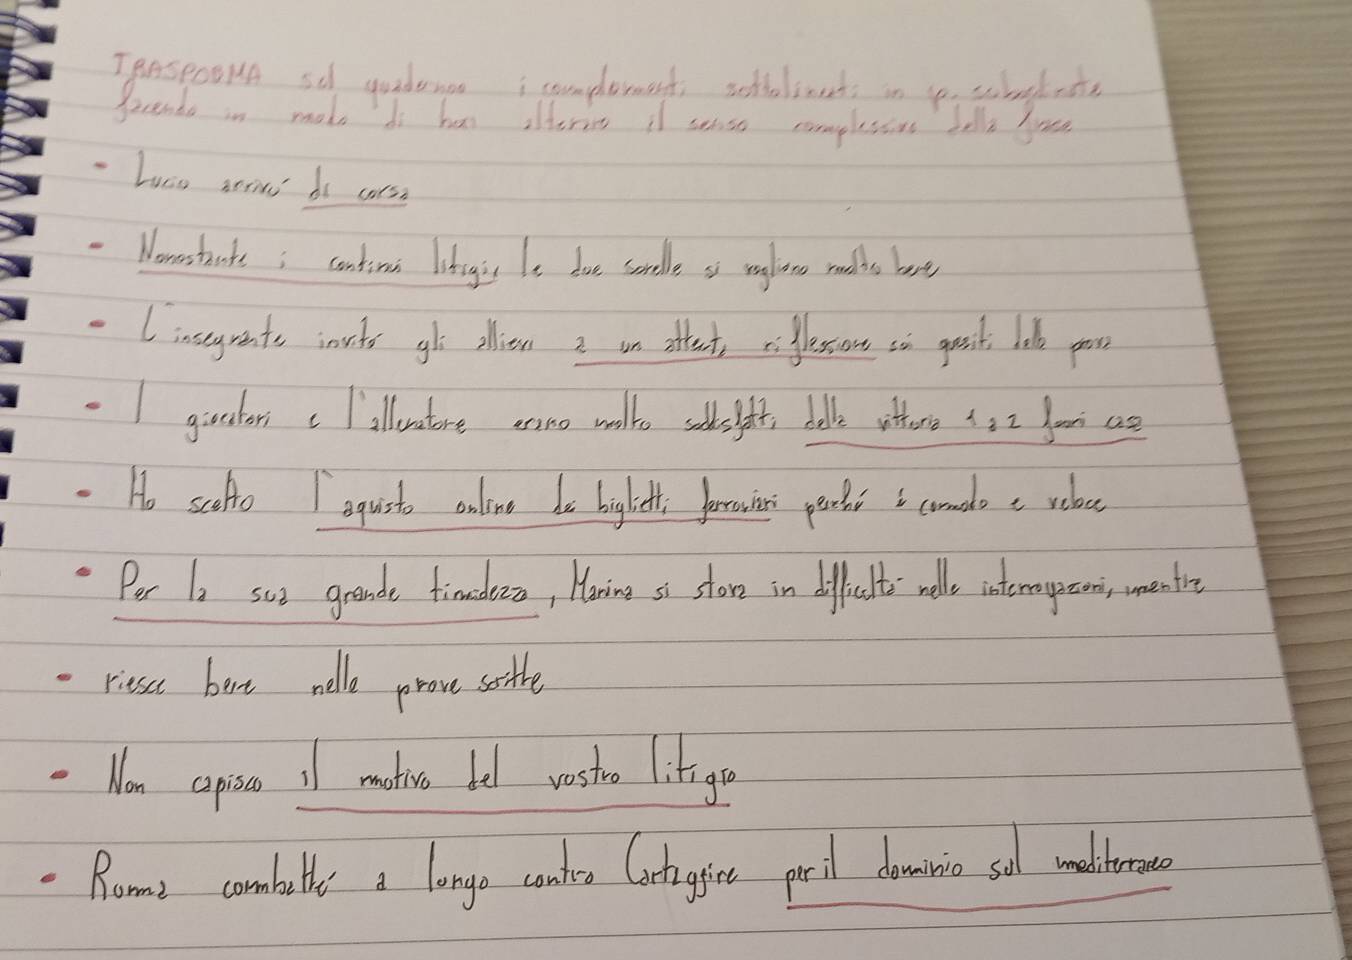 TRASFORMA sul quaderno i complementi sottolineati in p. subordinate
facendo in modo di non alterare il senso complessivo della frase
- Lucio arrivò di corsa
- Nonostante i continui litigi, le due sorelle si vogliono molto bene
- L'insegnante invitò gli allievi a un attenta riflessione sui quesiti della prova
- I giocatori e l'allenatore erano molto soddisfatti della vittoria 1 a 2 fuori casa
- Ho scelto l'aquisto online dei biglietti ferroviari perché è comodo e veloce
- Per la sua grande timidezza, Marina si trova in difficoltà nelle interrogazioni, mentre
- riesce bene nelle prove scritte
- Non capisco il motivo del vostro litigio
- Roma combatté a lungo contro Cartagine per il dominio sul mediterraneo